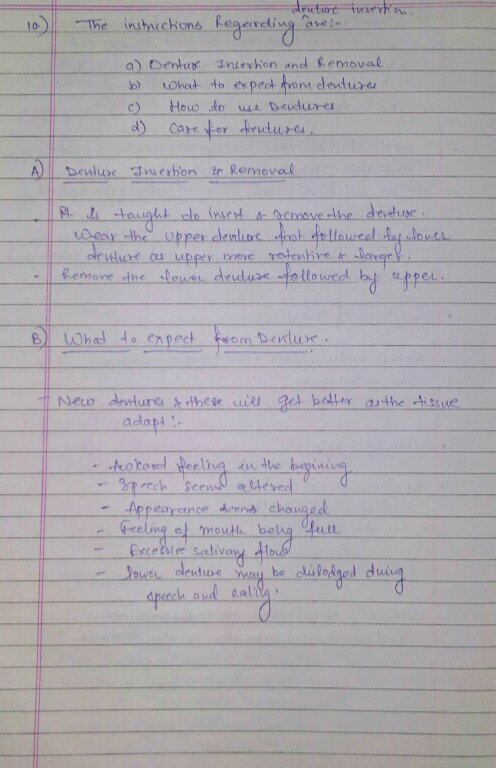 denture insertion.
10) The instructions Regarding ^ are:-
a) Denture Insertion and Removal
b) What to expect from dentures
c) How do use Dentures
d) Care for dentures.
A) Denture Insertion & Removal
- Pt is taught do insert & remove the denture.
Wear the upper denture first followed by lower
denture as upper more retentive & larger.
- Remove the lower denture followed by upper.
B) What to expect from Denture.
- New dentures & these will get better as the tissue
adapt :-
- Awkard feeling in the begining
- Speech seems altered
- Appearance seems changed
- Feeling of mouth being full
- Excessive salivary flow
- lower denture may be dislodged duing
speech and eating.